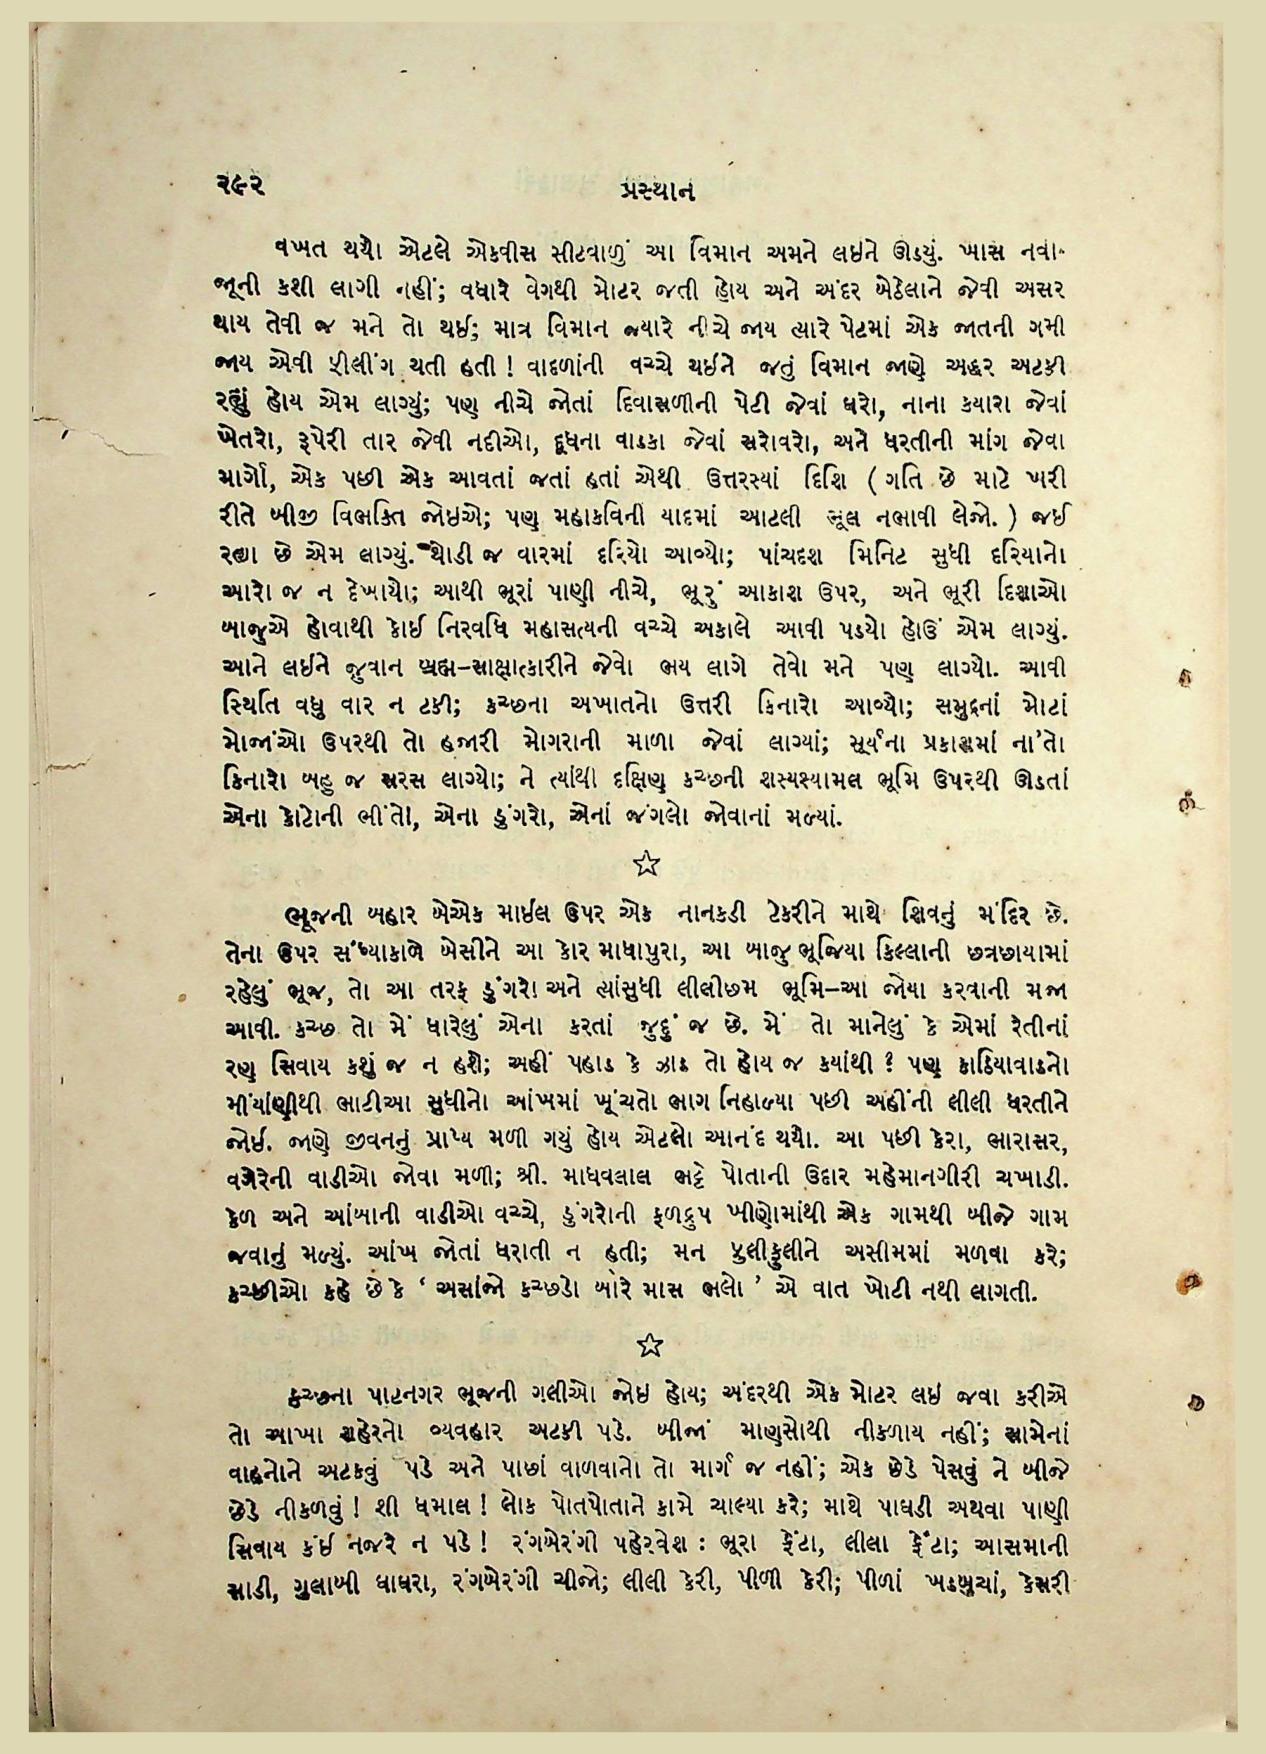 ૨૯૨
પ્રસ્થાન
વખત થયો એટલે એકવીસ સીટવાળું આ વિમાન અમને લઇને ઊડયું. ખાસ નવા-
જૂની કશી લાગી નહીં; વધારે વેગથી મોટર જતી હોય અને અંદર બેઠેલાને જેવી અસર
થાય તેવી જ મને તો થઇ; માત્ર વિમાન જ્યારે નીચે જાય ત્યારે પેટમાં એક જાતની ગમી
જાય એવી ફીલીંગ થતી હતી! વાદળાંની વચ્ચે થઇને જતું વિમાન જાણે અદ્ધર અટકી
રહ્યું હોય એમ લાગ્યું; પણ નીચે જોતાં દિવાસળીની પેટી જેવાં ઘરો, નાના કયારા જેવાં
ખેતરો, રૂપેરી તાર જેવી નદીઓ, દૂધના વાડકા જેવાં સરોવરો, અને ધરતીની માંગ જેવા
માર્ગો, એક પછી એક આવતાં જતાં હતાં એથી ઉત્તરસ્યાં દિશિ (ગતિ છે માટે ખરી
રીતે બીજી વિભક્તિ જોઇએ; પણ મહાકવિની યાદમાં આટલી ભૂલ નભાવી લેજો.) જઈ
રહ્યા છે એમ લાગ્યું. થોડી જ વારમાં દરિયો આવ્યો; પાંચદશ મિનિટ સુધી દરિયાનો
આરો જ ન દેખાયો; આથી ભૂરાં પાણી નીચે, ભૂરું આકાશ ઉપર, અને ભૂરી દિશાઓ
બાજુએ હોવાથી કોઈ નિરવધિ મહાસત્યની વચ્ચે અકાલે આવી પડયો હોઉં એમ લાગ્યું.
આને લઇને જુવાન બ્રહ્મ-સાક્ષાત્કારીને જેવો ભય લાગે તેવો મને પણ લાગ્યો. આવી
સ્થિતિ વધુ વાર ન ટકી; કચ્છના અખાતનો ઉત્તરી કિનારો આવ્યો; સમુદ્રનાં મોટાં
મોજાંઓ ઉપરથી તો હજારી મોગરાની માળા જેવાં લાગ્યાં; સૂર્યના પ્રકાશમાં ના'તો
કિનારો બહુ જ સરસ લાગ્યો; ને ત્યાંથી દક્ષિણ કચ્છની શસ્યશ્યામલ ભૂમિ ઉપરથી ઊડતાં
એના કોટોની ભીંતો, એના ડુંગરો, એનાં જંગલો જોવાનાં મળ્યાં.
ભૂજની બહાર બેએક માઈલ ઉપર એક નાનકડી ટેકરીને માથે શિવનું મંદિર છે.
તેના ઉપર સંધ્યાકાળે બેસીને આ કોર માધાપુરા, આ બાજુ ભૂજિયા કિલ્લાની છત્રછાયામાં
રહેલું ભૂજ, તો આ તરફ ડુંગરો અને ત્યાંસુધી લીલીછમ ભૂમિ-આ જોયા કરવાની મજા
આવી. કચ્છ તો મેં ધારેલું એના કરતાં જુદું જ છે. મેં તો માનેલું કે એમાં રેતીનાં
રણ સિવાય કશું જ ન હશે; અહીં પહાડ કે ઝાડ તો હોય જ કયાંથી? પણ કાઠિયાવાડનો
મીંયાંણીથી ભાટીઆ સુધીનો આંખમાં ખૂંચતો ભાગ નિહાળ્યા પછી અહીંની લીલી ધરતીને
જોઈ. જાણે જીવનનું પ્રાપ્ય મળી ગયું હોય એટલો આનંદ થયો. આ પછી કેરા, ભારાસર,
વગેરેની વાડીઓ જોવા મળી; શ્રી. માધવલાલ ભટ્ટે પોતાની ઉદાર મહેમાનગીરી ચખાડી.
કેળ અને આંબાની વાડીઓ વચ્ચે, ડુંગરોની ફળદ્રુપ ખીણોમાંથી એક ગામથી બીજે ગામ
જવાનું મળ્યું. આંખ જોતાં ધરાતી ન હતી; મન ફુલીફુલીને અસીમમાં મળવા કરે;
કચ્છીઓ કહે છે કે ‘ અસાંજો કચ્છડો બારે માસ ભલો ’ એ વાત ખોટી નથી લાગતી.
કચ્છના પાટનગર ભૂજની ગલીઓ જોઇ હોય; અંદરથી એક મોટર લઇ જવા કરીએ
તો આખા શહેરનો વ્યવહાર અટકી પડે. બીજાં માણસોથી નીકળાય નહીં; સામેનાં
વાહનોને અટકવું પડે અને પાછાં વાળવાનો તો માર્ગ જ નહીં; એક છેડે પેસવું ને બીજે
છેડે નીકળવું! શી ધમાલ! લોક પોતપોતાને કામે ચાલ્યા કરે; માથે પાઘડી અથવા પાણી
સિવાય કંઈ નજરે ન પડે! રંગબેરંગી પહેરવેશ : ભૂરા ફેંટા, લીલા ફેંટા; આસમાની
સાડી, ગુલાબી ઘાઘરા, રંગબેરંગી ચીજો; લીલી કેરી, પીળી કેરી; પીળાં ખડબુચાં, કેસરી